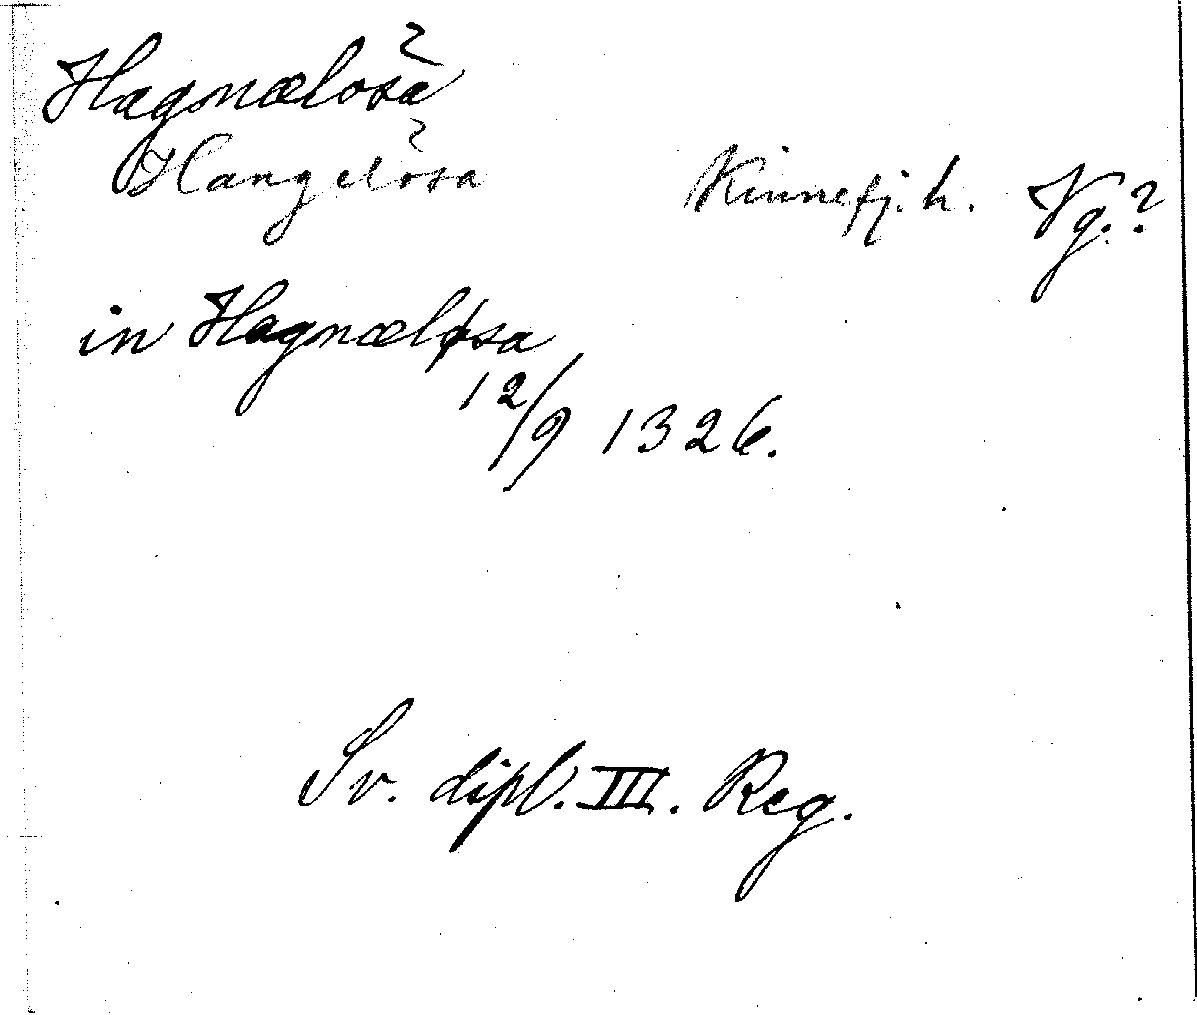 Hagnælosa?
Hangelösa? Kinnefj. h. Vg.?
in Hagnæløsa
12/9 1326.
Sv. dipl. III. Reg.